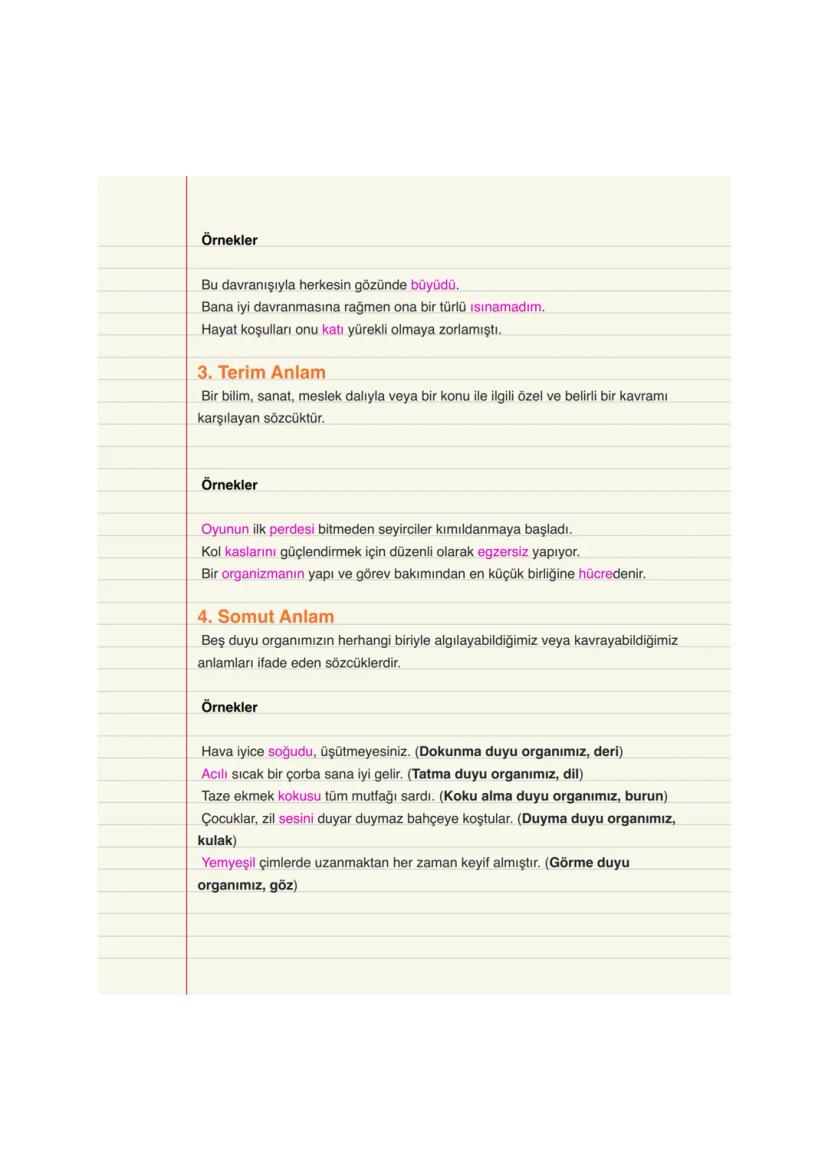 Örnekler
Bu davranışıyla herkesin gözünde büyüdü.
Bana iyi davranmasına rağmen ona bir türlü ısınamadım.
Hayat koşulları onu katı yürekli olmaya zorlamıştı.
3. Terim Anlam
Bir bilim, sanat, meslek dalıyla veya bir konu ile ilgili özel ve belirli bir kavramı
karşılayan sözcüktür.
Örnekler
Oyunun ilk perdesi bitmeden seyirciler kımıldanmaya başladı.
Kol kaslarını güçlendirmek için düzenli olarak egzersiz yapıyor.
Bir organizmanın yapı ve görev bakımından en küçük birliğine hücredenir.
4. Somut Anlam
Beş duyu organımızın herhangi biriyle algılayabildiğimiz veya kavrayabildiğimiz
anlamları ifade eden sözcüklerdir.
Örnekler
Hava iyice soğudu, üşütmeyesiniz. (Dokunma duyu organımız, deri)
Acılı sıcak bir çorba sana iyi gelir. (Tatma duyu organımız, dil)
Taze ekmek kokusu tüm mutfağı sardı. (Koku alma duyu organımız, burun)
Çocuklar, zil sesini duyar duymaz bahçeye koştular. (Duyma duyu organımız,
kulak)
Yemyeşil çimlerde uzanmaktan her zaman keyif almıştır. (Görme duyu
organımız, göz)